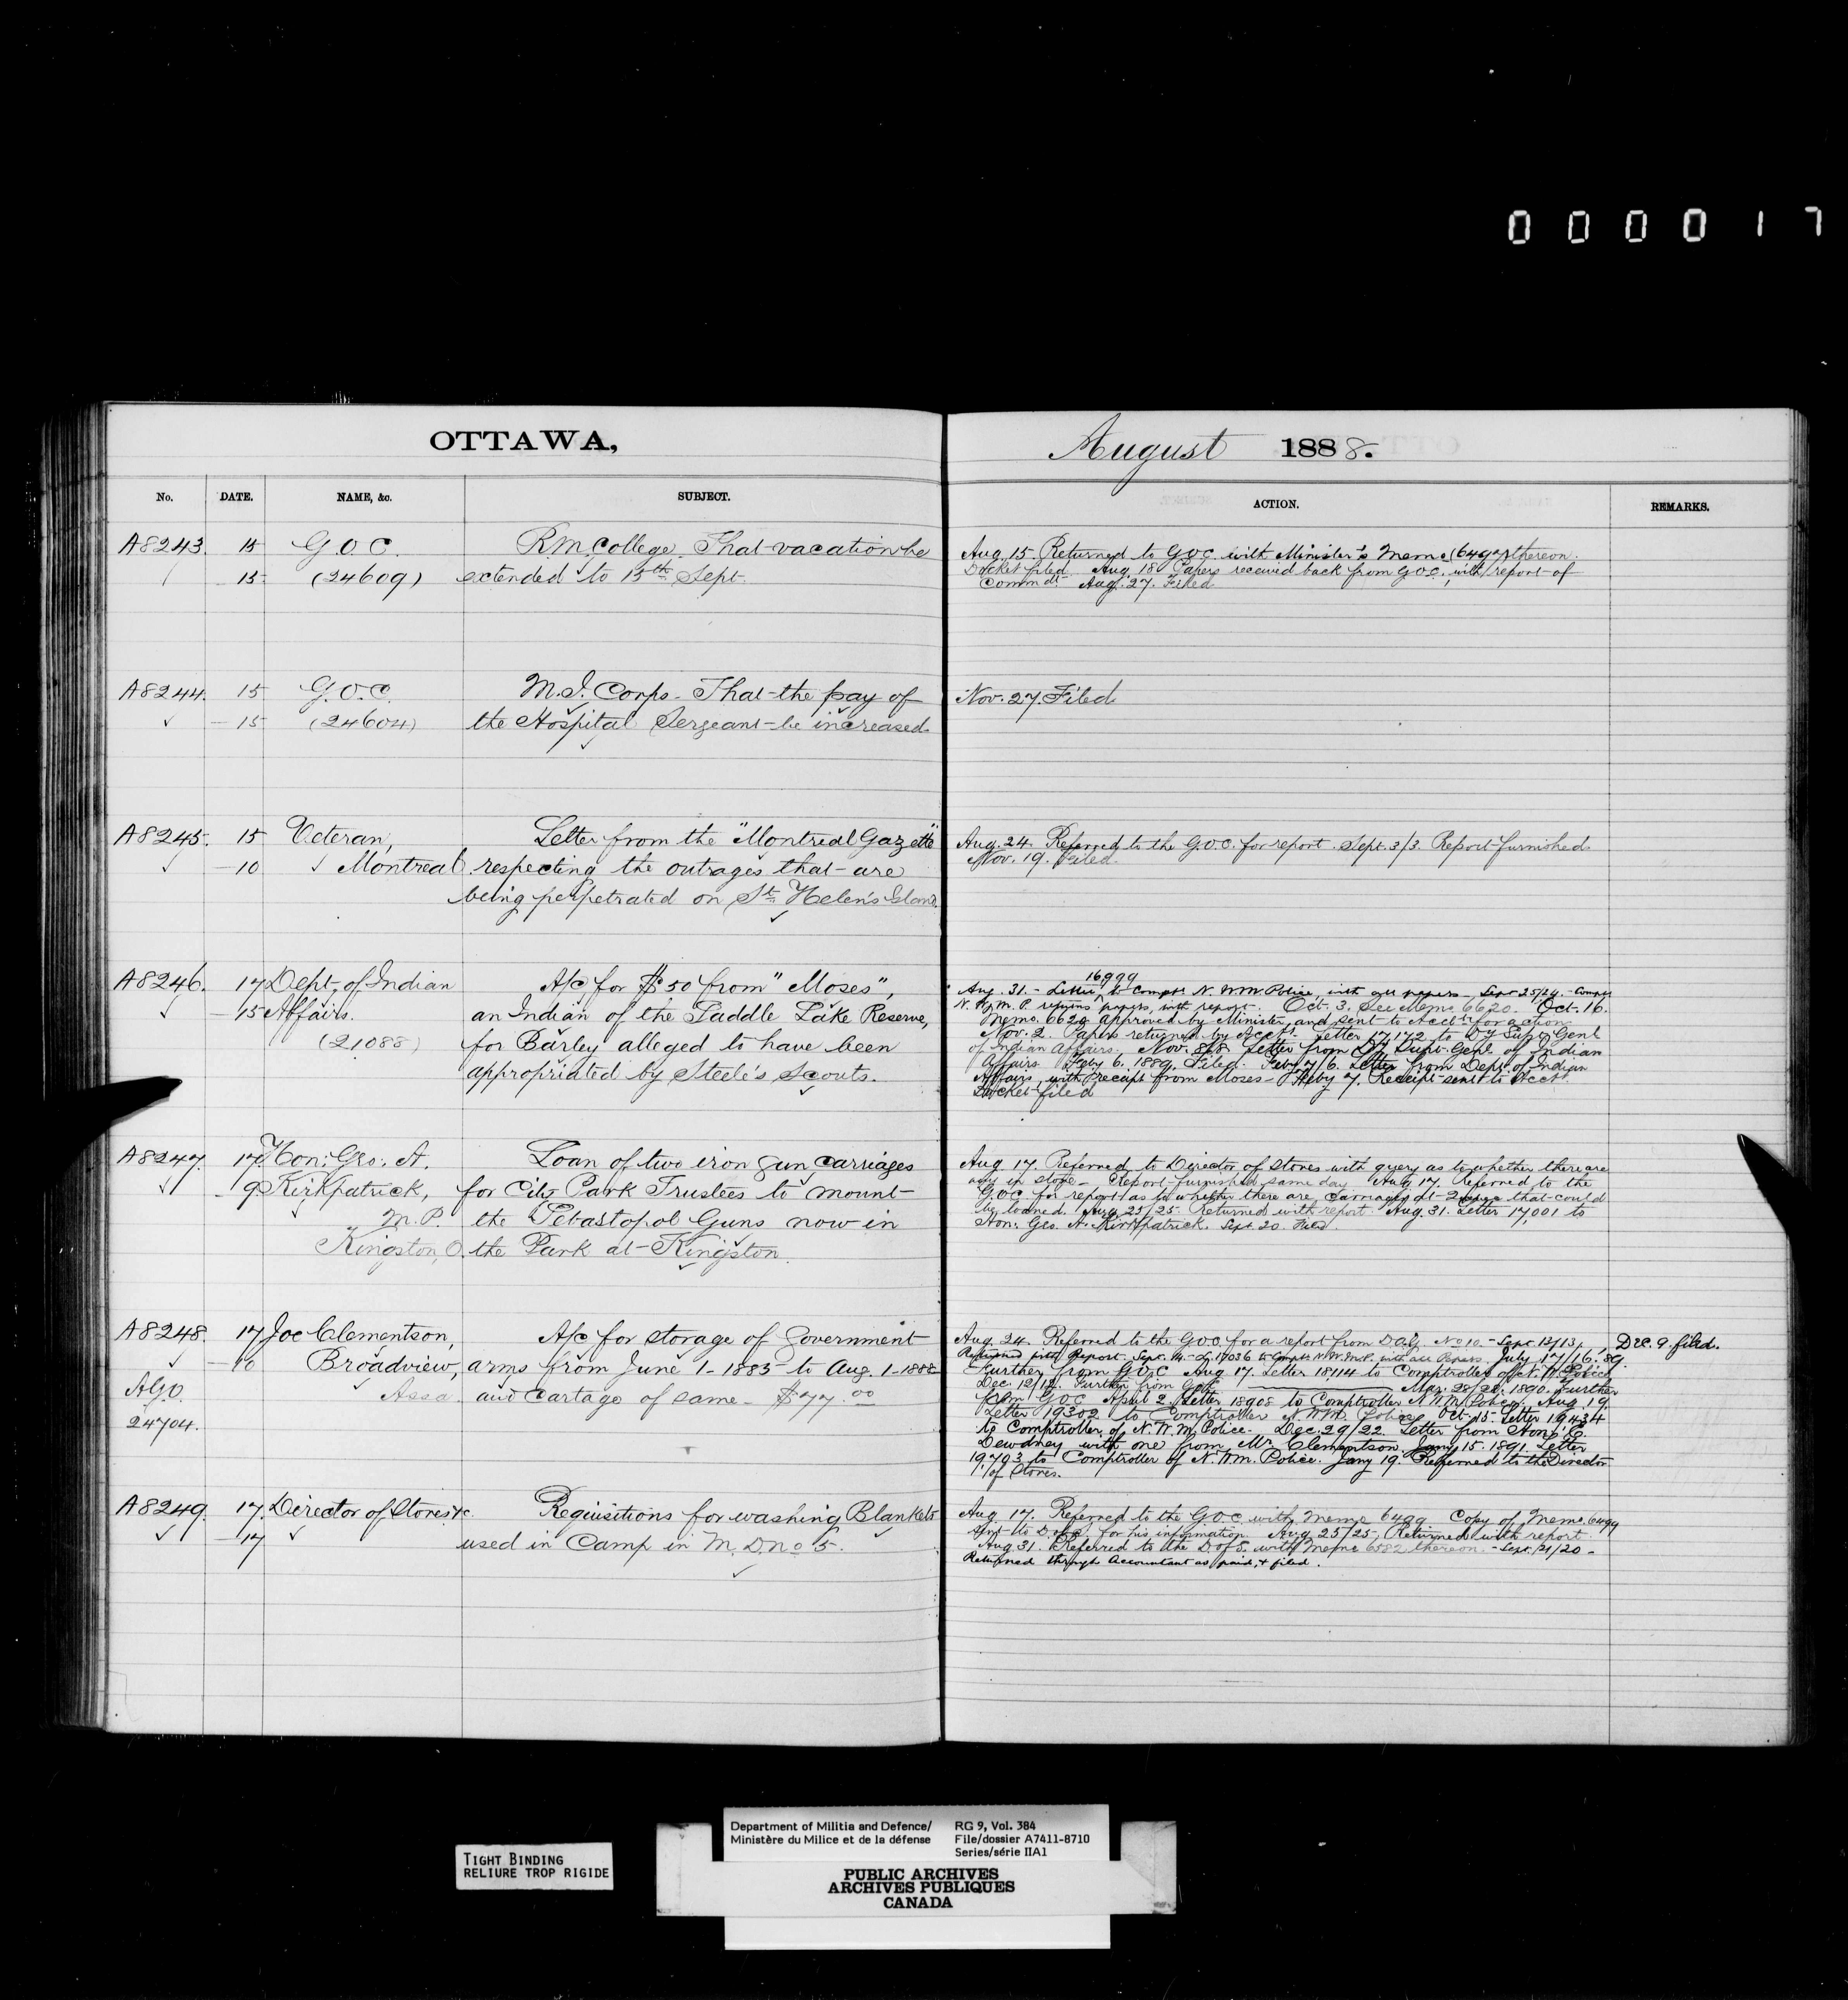 0 0 0 0 1 7
OTTAWA,
August 1888.
No. DATE. NAME, &c. SUBJECT. ACTION. REMARKS.
A8243. 15 G.O.C. R.M. College. That vacation be
15 (24609) extended to 15th Sept.
Aug. 15. Returned to G.O.C. with Minister's Memo thereon.
Docket filed. Aug. 18. Papers received back from G.O.C., with report of
Commdt. Aug. 27. Filed
A8244. 15 G.O.C. M.I. Corps. That the pay of
15 (24604) the Hospital Sergeant be increased.
Nov. 27. Filed
A8245. 15 Veteran, Letter from the "Montreal Gazette"
10 Montreal respecting the outrages that are
being perpetrated on St. Helen's Island.
Aug. 24. Referred to the G.O.C. for report. Sept. 3/3. Report furnished.
Nov. 19. Filed.
A8246. 17 Dept. of Indian A/c for $50 from "Moses",
15 Affairs. an Indian of the Saddle Lake Reserve,
(21088) for Barley alleged to have been
appropriated by Steele's Scouts.
16999
Aug. 31. - Letter to Compt. N.W.M. Police, with all papers - Sept 25/24. - Compt
N.W.M.P. returns papers, with report. Oct. 3. See Memo. 6620. Oct. 16.
Memo. 6620 approved by Minister, and sent to Acctt. for action
Nov. 2. Papers returned by Acctt. Letter 17,172 to Dy Supt Genl
of Indian Affairs. Nov. 8/8. Letter from Dy Supt-Genl of Indian
Affairs. Feby 6. 1889. Filed. Feby 7/6. Letter from Dept. of Indian
Affairs, with receipt from Moses - Feby 7. Receipt sent to Acctt.
Docket filed
A8247. 17 Hon: Geo: A. Loan of two iron gun carriages
9 Kirkpatrick, for City Park Trustees to mount
M.P. the Sebastopol Guns now in
Kingston, O. the Park at Kingston.
Aug 17. Referred to Director of Stores with query as to whether there are
any in store - Report furnished same day. Aug 17. Referred to the
G.O.C. for report as to whether there are carriages at that could
be loaned. Aug. 25/25. Returned with report. Aug. 31. Letter 17,001 to
Hon: Geo. A. Kirkpatrick. Sept. 20. Filed.
A8248. 17 Joe Clementson, A/c for storage of Government
10 Broadview, arms from June 1-1885 to Aug. 1-1888
A.G.O. Assa. and cartage of same - $77.00
24704.
Aug 24. Referred to the G.O.C. for a report from D.A.G. No 10. - Sept. 13/13, Dec. 9. filed.
Returned with Report. Sept. 14. - L. 17036 to Comptr N.W.M.P. with all Papers. July 17/16. 89.
Further from G.O.C. Aug 17. Letter 18114 to Comptroller of N.W. Police
Dec. 12/12. Further from G.O.C. Mar. 28/28. 1890. Further
from G.O.C. April 2. Letter 18908 to Comptroller N.W.M. Police. Aug. 19.
Letter 19302 to Comptroller N.W.M. Police. Oct. 15. Letter 19434
to Comptroller of N.W.M. Police. Dec. 29/22. Letter from Hon: E.
Dewdney with one from Mr. Clementson. Jany 15. 1891. Letter
19793 to Comptroller of N.W.M. Police. Jany 19. Referred to the Director
of Stores.
A8249. 17. Director of Stores &c. Requisitions for washing Blankets
17 used in Camp in M.D. No 5.
Aug 17. Referred to the G.O.C. with Memo 6499. Copy of Memo. 6499
sent to D. of S. for his information. Aug 25/25, Returned with report.
Aug 31. Referred to the D. of S. with Memo 6582 thereon. - Sept. 21/20 -
Returned through Accountant as paid, & filed.
TIGHT BINDING
RELIURE TROP RIGIDE
Department of Militia and Defence/ RG 9, Vol. 384
Ministère du Milice et de la défense File/dossier A7411-8710
Series/série IIA1
PUBLIC ARCHIVES
ARCHIVES PUBLIQUES
CANADA